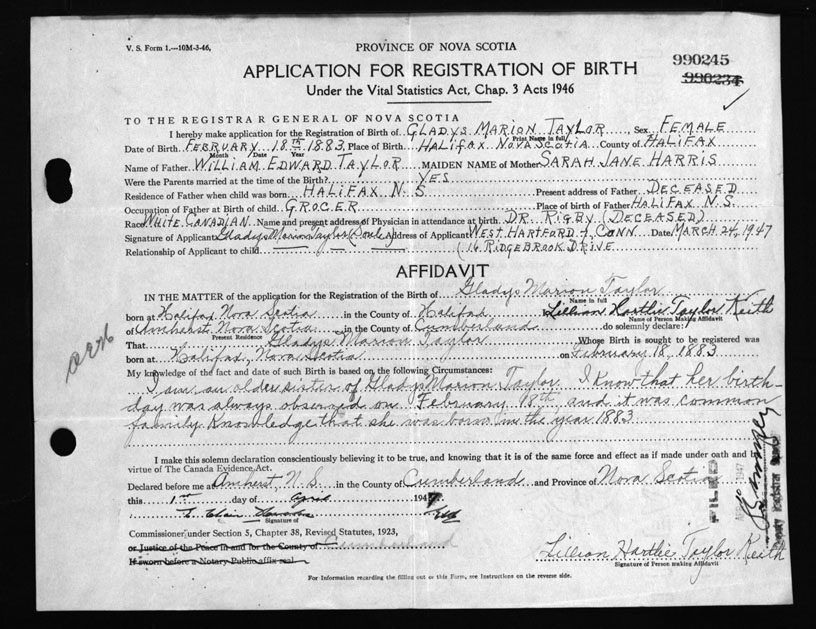 V. S. Form 1.—10M-3-46,
PROVINCE OF NOVA SCOTIA
990245
990234
APPLICATION FOR REGISTRATION OF BIRTH
Under the Vital Statistics Act, Chap. 3 Acts 1946
TO THE REGISTRAR GENERAL OF NOVA SCOTIA
I hereby make application for the Registration of Birth of GLADYS MARION TAYLOR, Sex FEMALE
Print Name in full
Date of Birth FEBRUARY 18th 1883 Place of Birth HALIFAX NOVA SCOTIA County of HALIFAX
Month Date Year
Name of Father WILLIAM EDWARD TAYLOR MAIDEN NAME of Mother SARAH JANE HARRIS
Were the Parents married at the time of the Birth? YES
Residence of Father when child was born HALIFAX N S Present address of Father DECEASED
Occupation of Father at Birth of child GROCER Place of birth of Father HALIFAX N.S.
Race WHITE CANADIAN Name and present address of Physician in attendance at birth DR RIGBY (DECEASED)
Signature of Applicant Gladys Marion Taylor Address of Applicant WEST HARTFORD 7, CONN Date MARCH 24, 1947
Relationship of Applicant to child (16 RIDGEBROOK DRIVE
AFFIDAVIT
IN THE MATTER of the application for the Registration of the Birth of Gladys Marion Taylor
Name in full
born at Halifax Nova Scotia in the County of Halifax Lillian Harthie Taylor Keith
Name of Person Making Affidavit
of Amherst, Nova Scotia in the County of Cumberland do solemnly declare:
Present Residence
That Gladys Marion Taylor Whose Birth is sought to be registered was
born at Halifax, Nova Scotia on February 18, 1883
My knowledge of the fact and date of such Birth is based on the following Circumstances:
I am an older sister of Gladys Marion Taylor. I know that her birth-
day was always observed on February 18th, and it was common
family knowledge that she was born in the year 1883
I make this solemn declaration conscientiously believing it to be true, and knowing that it is of the same force and effect as if made under oath and by
virtue of The Canada Evidence Act.
Declared before me at Amherst, N. S. in the County of Cumberland and Province of Nova Scotia
this 1st day of April 1947
Signature of
FILED
Commissioner under Section 5, Chapter 38, Revised Statutes, 1923,
or Justice of the Peace in and for the County of Cumberland
If sworn before a Notary Public affix seal
Lillian Harthie Taylor Keith
Signature of Person making Affidavit
For Information regarding the filling out of this Form, see Instructions on the reverse side.